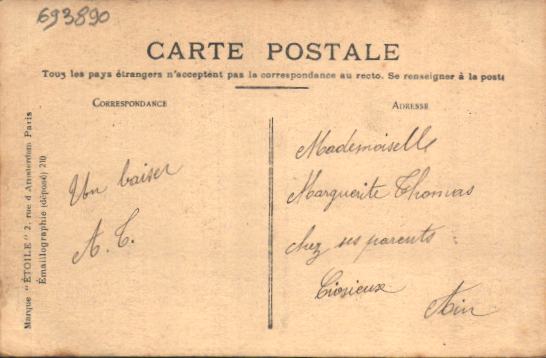 693890
CARTE POSTALE
Tous les pays étrangers n'acceptent pas la correspondance au recto. Se renseigner à la poste
CORRESPONDANCE
ADRESSE
Marque "ÉTOILE" 2, rue d'Amsterdam Paris
Émaillographie (déposé) 210
Un baiser
A. T.
Mademoiselle
Marguerite Thomas
chez ses parents
Ain